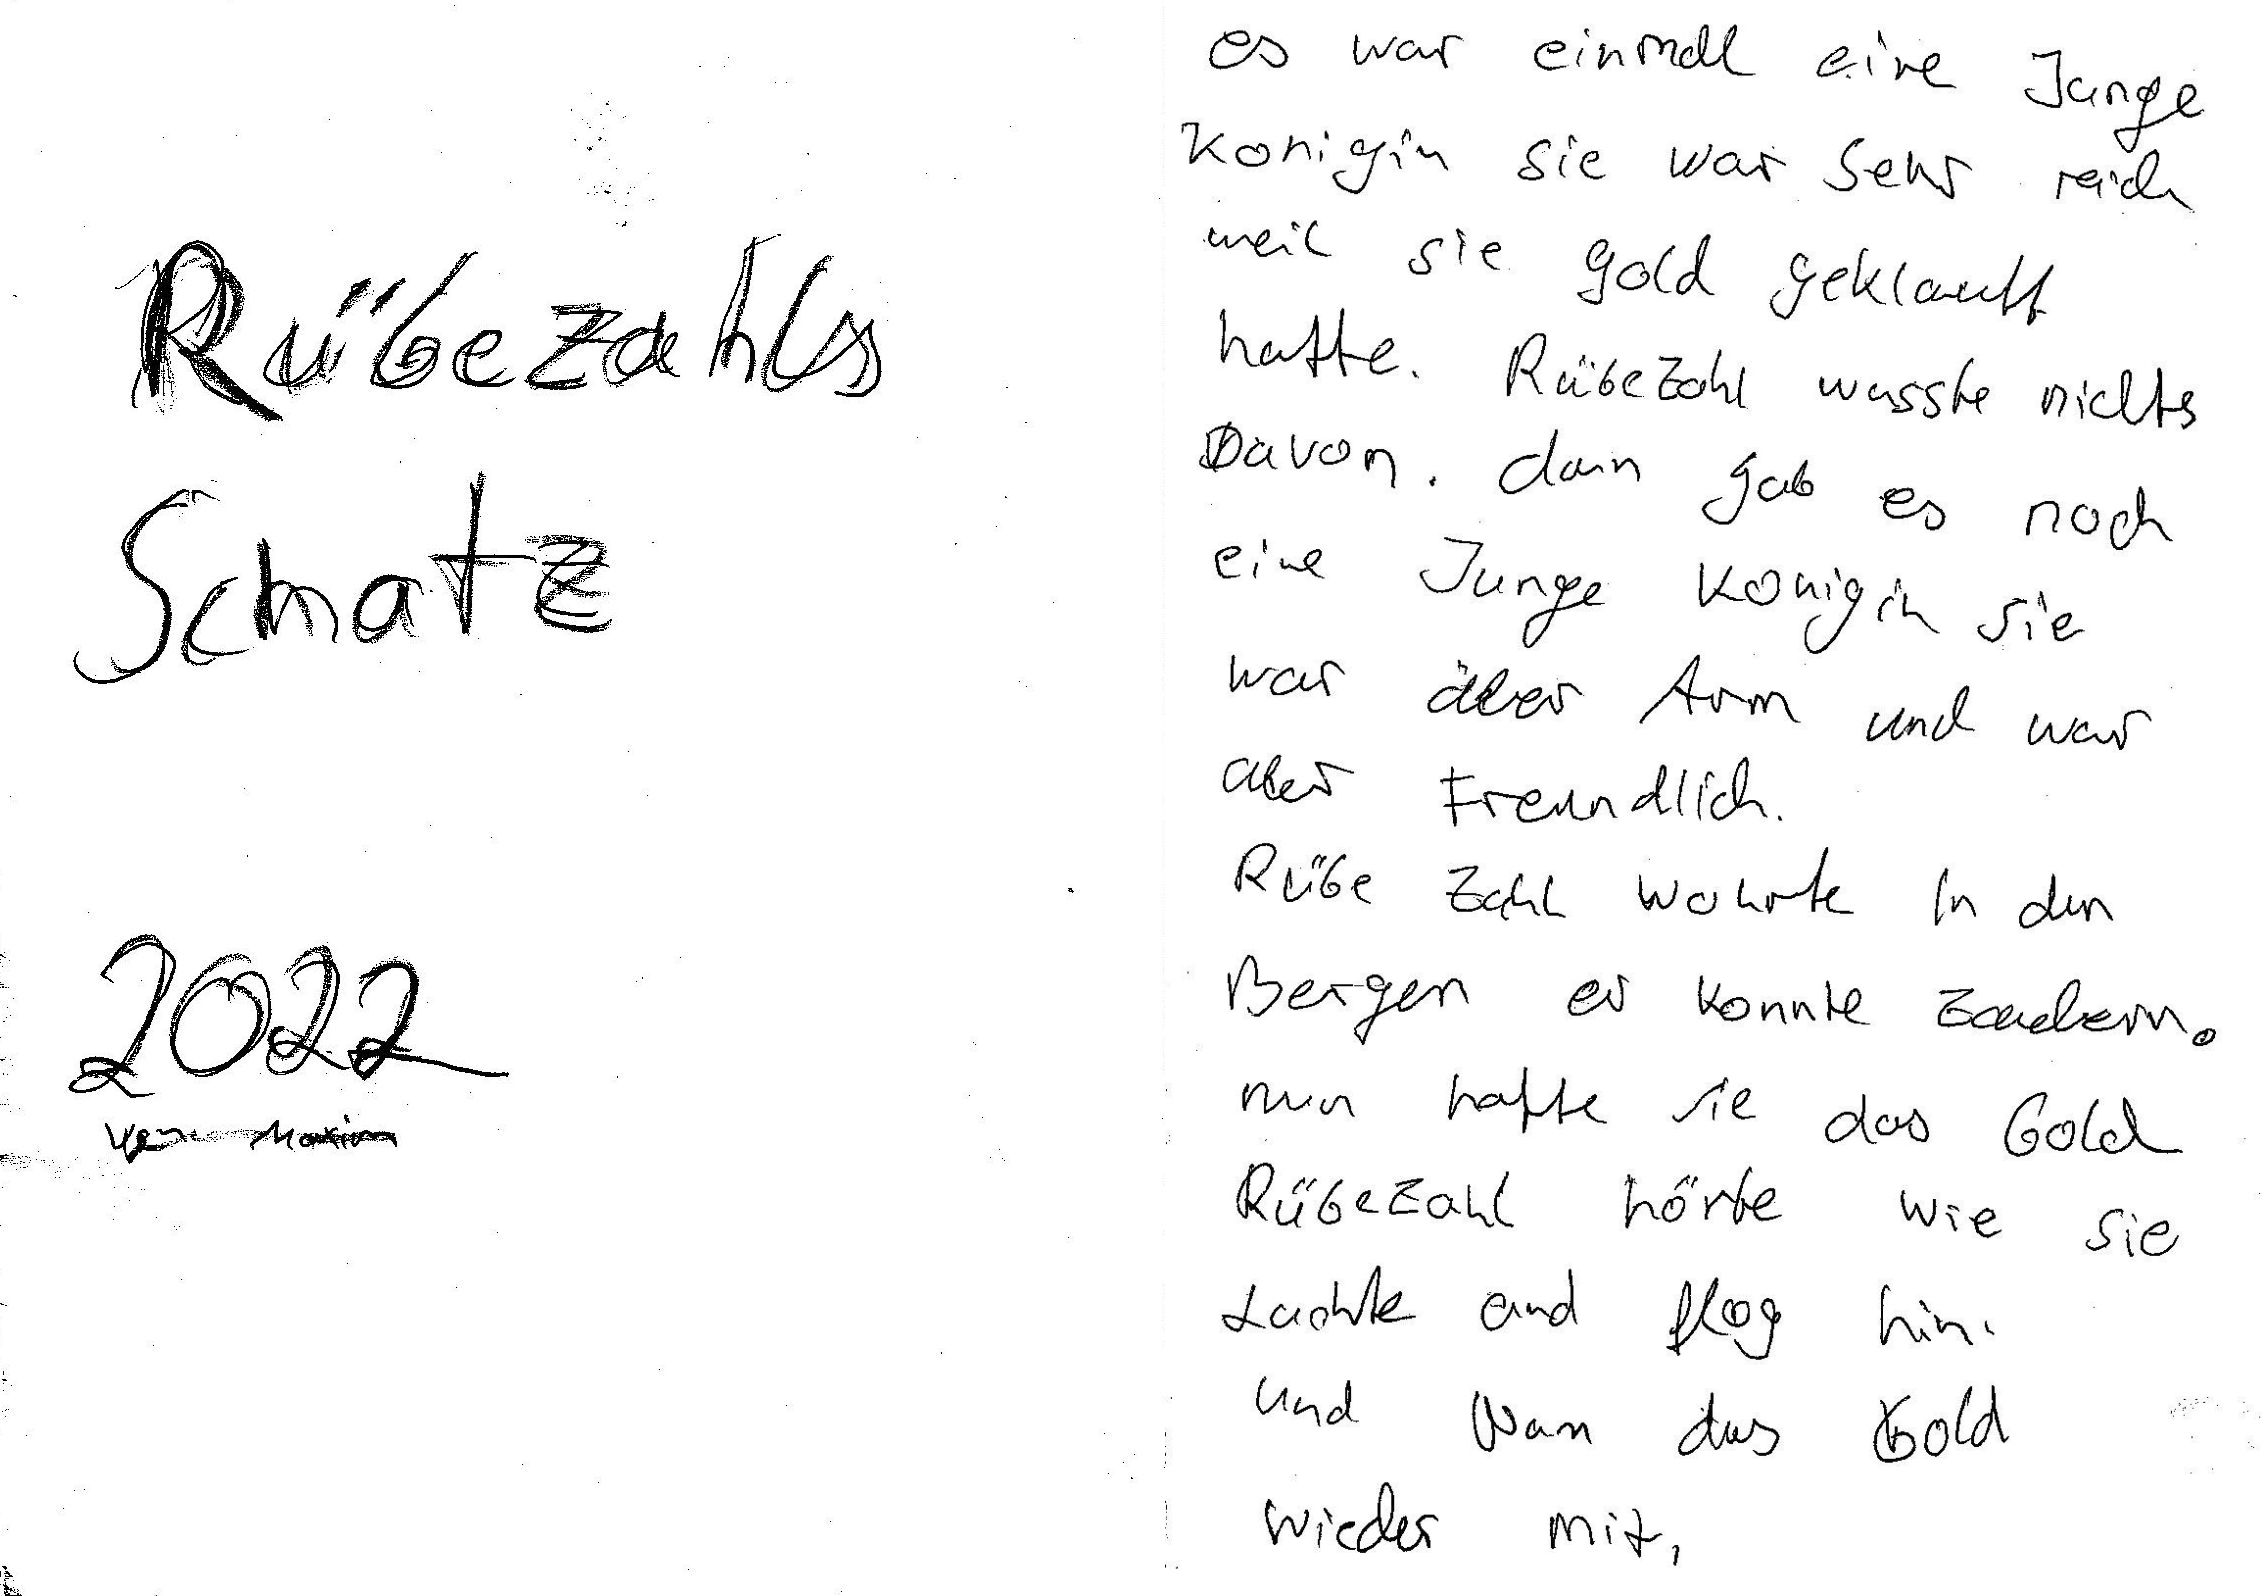 Rübezahls
Schatz
2022
von Maxim
es war einmal eine Junge
Konigin sie war Sehr reich
weil sie gold geklauft
hatte. RübeZahl wusste nichts
Davon. dann gab es noch
eine Junge Konigin sie
war aber Arm und war
aber Freundlich.
Rübe Zahl wohnte In den
Bergen er konnte zaubern.
nun hatte sie das Gold
RübeZahl hörte wie sie
Lachte und flog hin.
und Nam das Gold
wieder mit,